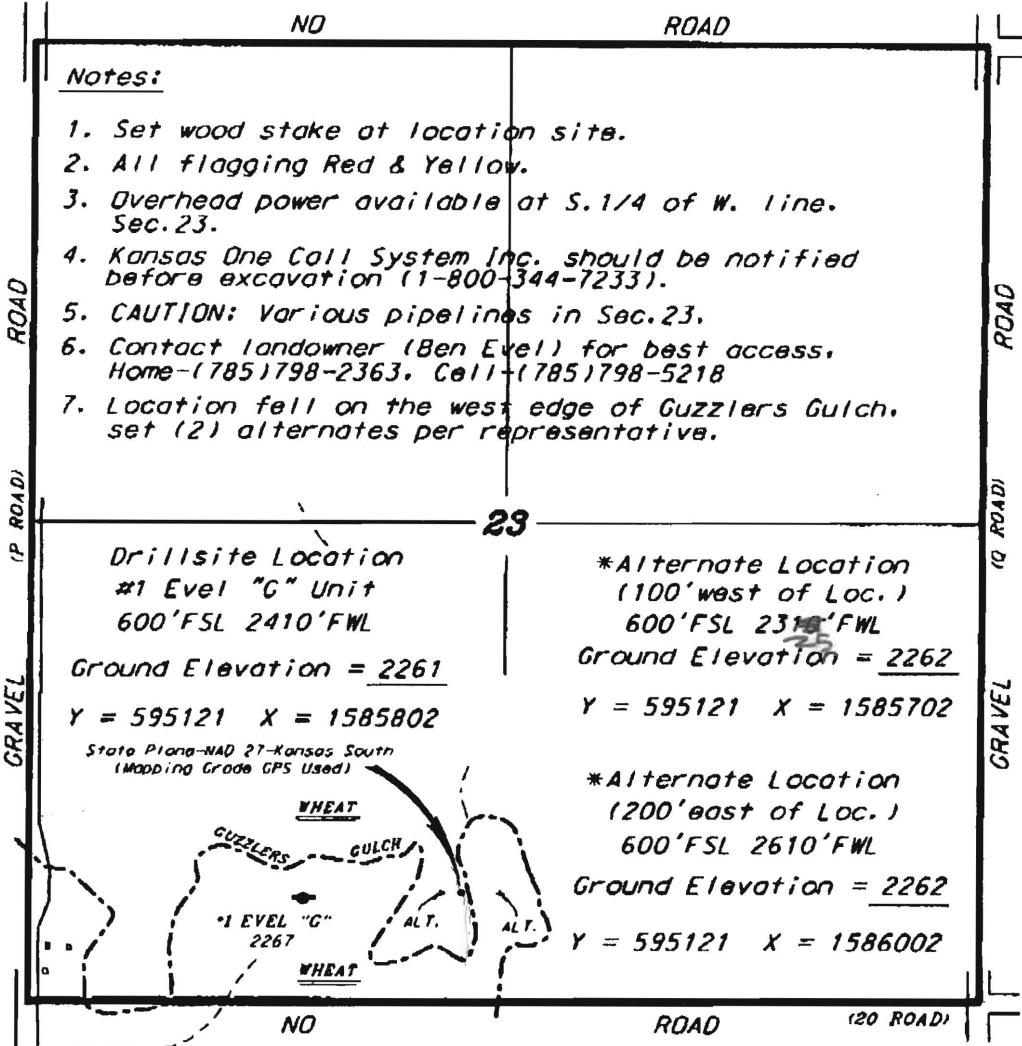 NO ROAD
Notes:
1. Set wood stake at location site.
2. All flagging Red & Yellow.
3. Overhead power available at S.1/4 of W. line.
Sec.23.
4. Kansas One Call System Inc. should be notified
before excavation (1-800-344-7233).
5. CAUTION: Various pipelines in Sec.23.
6. Contact landowner (Ben Evel) for best access.
Home-(785)798-2363. Cell-(785)798-5218
7. Location fell on the west edge of Guzzlers Gulch.
set (2) alternates per representative.
ROAD
(P ROAD)
GRAVEL
ROAD
(Q ROAD)
GRAVEL
23
Drillsite Location
#1 Evel "G" Unit
600'FSL 2410'FWL
Ground Elevation = 2261
Y = 595121 X = 1585802
State Plane-NAD 27-Kansas South
(Mapping Grade GPS Used)
*Alternate Location
(100'west of Loc.)
600'FSL 2310'FWL
25
Ground Elevation = 2262
Y = 595121 X = 1585702
*Alternate Location
(200'east of Loc.)
600'FSL 2610'FWL
Ground Elevation = 2262
Y = 595121 X = 1586002
WHEAT
GUZZLERS GULCH
#1 EVEL "G"
2267
ALT.
ALT.
WHEAT
NO ROAD (20 ROAD)